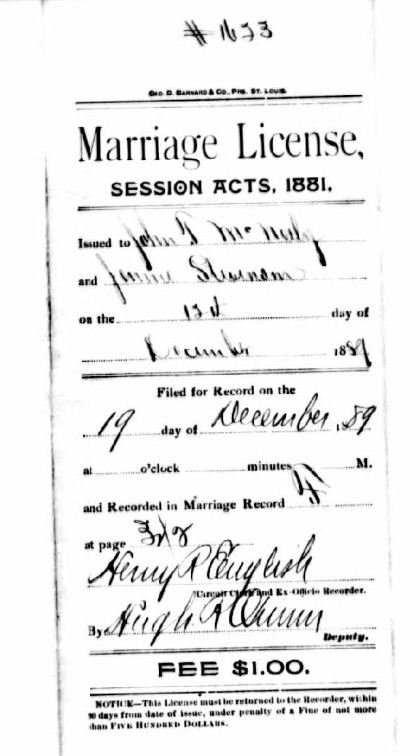 # 1633
GEO. D. BARNARD & CO., PRS. ST. LOUIS.
Marriage License,
SESSION ACTS, 1881.
Issued to John T McNeely
and Jennie
on the 13th day of
December 1889
Filed for Record on the
19 day of December, 89
at o'clock minutes M.
and Recorded in Marriage Record F
at page
Henry R English
Circuit Clerk and Ex-Officio Recorder.
By Hugh R
Deputy.
FEE $1.00.
NOTICE—This License must be returned to the Recorder, within
90 days from date of issue, under penalty of a Fine of not more
than FIVE HUNDRED DOLLARS.